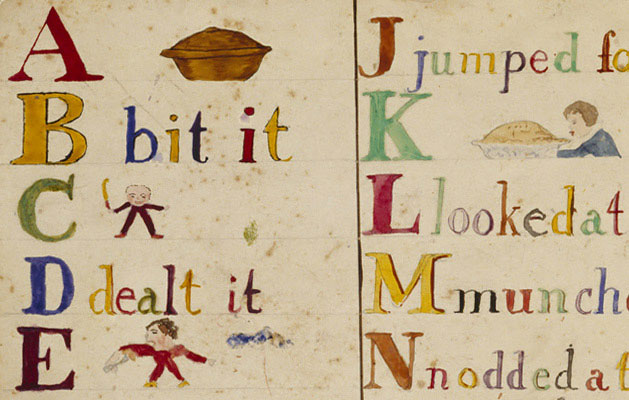 A
B bit it
C
D dealt it
E
J jumped fo
K
L looked at
M munche
N nodded at